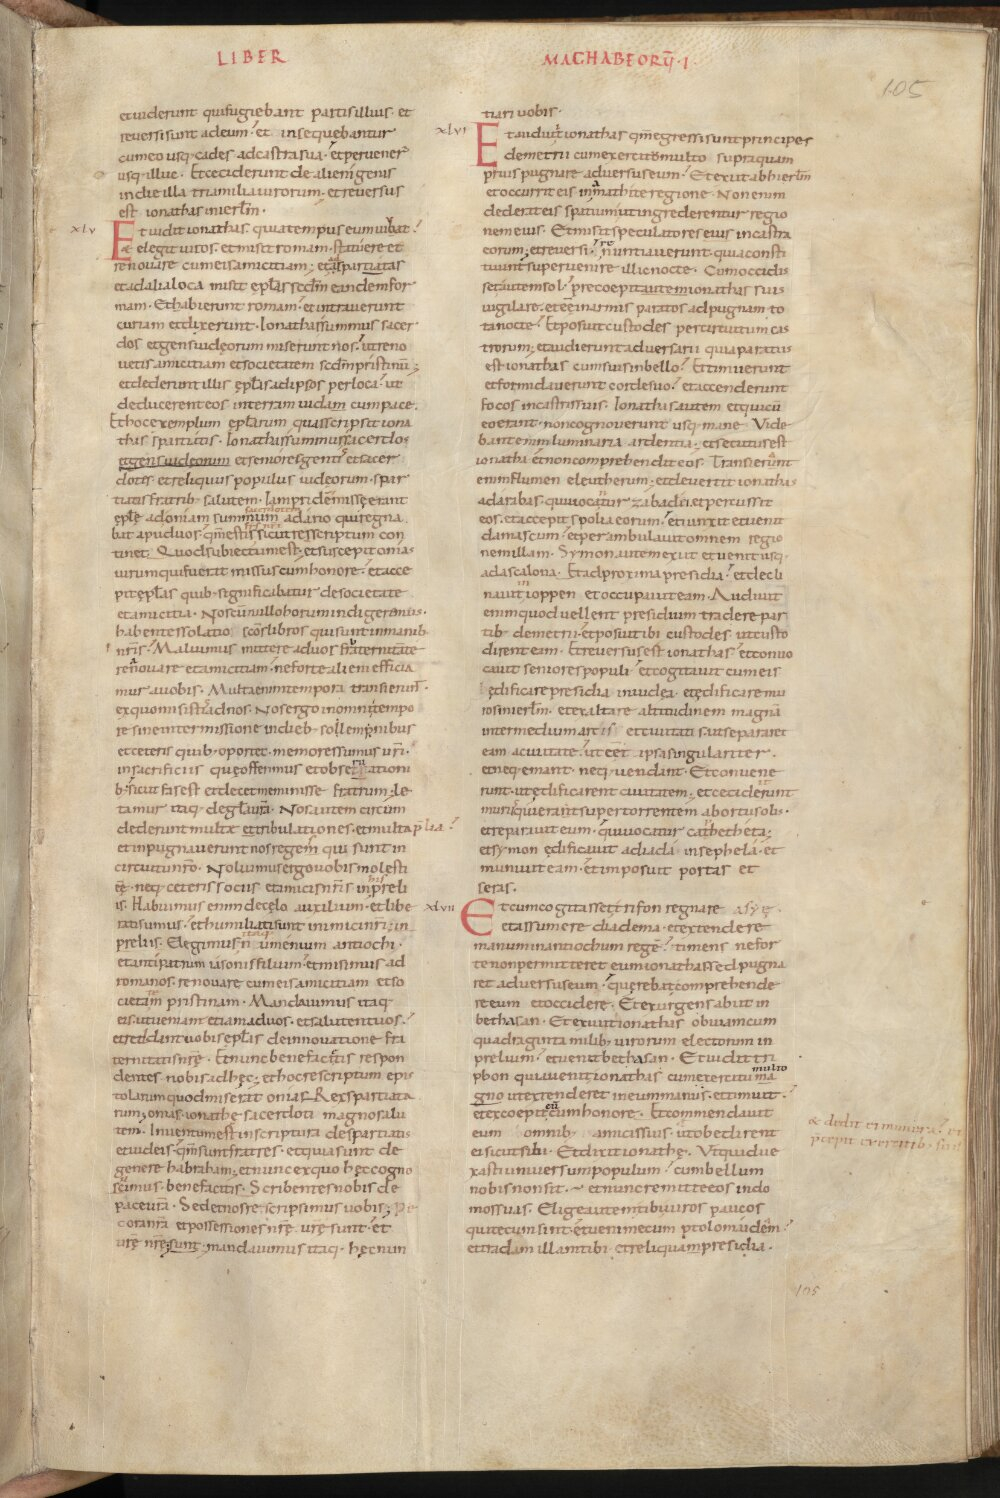 LIBER
MACHABEORŪ · I ·
105
et uiderunt qui fugiebant partis illius · et
reuersi sunt ad eum · et insequebantur
cum eo usq; cades ad castra sua · et peruener̄
usq; illuc · Et ceciderunt de alienigenis
in die illa tria milia uirorum · et reuersus
est ionathas in ierłm ·
xlv
Et uidit ionathas · quia tempus eum iubat ·
& elegit uiros · et misit romam · statuere et
renouare cum eis amicitiam ; et ad spartiatas
et ad alia loca misit ep̄las scdm eandem for
mam · Et habierunt romam · et intrauerunt
curiam et dixerunt · Ionathas summus sacer
dos et gens iudeorum miserunt nos · ut reno
uetis amicitiam et societatem scdm pristinū ;
et dederunt illis ep̄las ad ipsos per loca · ut
deducerent eos in terram iudam cum pace ·
Et hoc exemplum ep̄larum quas scripsit iona
thas spartiatis · Ionathas summus sacerdos
et gens iudeorum et seniores gentis et sacer
dotes · et reliquus populus iudeorum · spar
tiatis fratrib; salutem · Iam pridē missę erant
ep̄lę ad oniam summum
sacerdotem
a dario qui regna
bat apud uos · qm̄ estis
frs nri
sicut rescriptum con
tinet · Quod subiectum est · et suscepit onias
uirum qui fuerat missus cum honore · et acce
pit ep̄las quib; significabatur de societate
et amicitia · Nos cum nullo horum indigeremus ·
habentes solatio scōs libros qui sunt in manib;
nr̄is · Maluimus mittere ad uos fraternitatē
renouare et amicitiam · ne forte alieni efficia
mur a uobis · Multa enim tempora transierunt ·
ex quo misistis ad nos · Nos ergo in omni tempo
re sine intermissione in dieb; sollempnibus
et ceteris quib; oportet · memores sumus uri ·
in sacrificiis quę offerimus et obseruationi
b; sicut fas est et decet meminisse fratrum · le
tamur itaq; de gła ura · Nos autem circum
dederunt multę et tribulationes · et multa plia ·
et inpugnauerunt nos reges qui sunt in
circuitu nro · Noluimus ergo uobis molesti
ēē · neq; ceteris sociis et amicis nr̄is in
his
preli
is · Habuimus enim de cęlo auxilium · et libe
rati sumus · et humiliati sunt inimici nr̄i · in
preliis · Elegimus
itaq;
numenium antiochi ·
et antipatrum iasonis filium · et misimus ad
romanos · renouare cum eis amicitiam et so
cietatem pristinam · Mandauimus itaq;
eis · ut ueniant etiam ad uos · et salutent uos ·
et reddant uobis ep̄las de innouatione fra
ternitatis nrę · Et nunc benefacitis respon
dentes nobis ad hęc ; et hoc rescriptum epis
tolarum quod miserat onias · Rex spartiata
rum ; onias · ionathe · sacerdoti magno salu
tem · Inuentum est in scriptura de spartiatis
et iudeis · qm̄ sunt fratres · et quia sunt de
genere habraham ; et nunc ex quo hęc cogno
scimus · benefacitis · Scribentes nobis de
pace ura · Sed et nos rescripsimus uobis ; Pe
cora nra et possessiones nrę urę sunt · et
urę nrę · sunt · mandauimus itaq; hęc nun
tiari uobis ·
xlvi
Et audiuit ionathas qm̄ egressi sunt principes
demetrii cum exercitu multo supra quam
prius pugnare aduersus eum · Et exiit ab hierłm
et occurrit eis in amathite regione · Non enim
dederat eis spatium ut ingrederentur regio
nem eius · Et misit speculatores eius in castra
eorum ; et reuersi · renuntiauerunt · quia consti
tuunt superuenire illic nocte · Cum occidis
set autem sol · precoepit autem ionathas suis
uigilare · et ēē in armis paratos ad pugnam to
ta nocte · Et posuit custodes per circuitum cas
trorum ; et audierunt aduersarii quia paratus
est ionathas cum suis in bello · Et timuerunt
et formidauerunt corde suo · et accenderunt
focos in castris suis · Ionathas autem et qui cū
eo erant · non cognouerunt usq; mane · Vide
bant enim luminaria ardentia ; et secutus est
ionathas et non comprehendit eos · Transierunt
enim flumen eleutherum ; et deuertit ionathas
ad arabas · qui uocantur zabadei · et percussit
eos · et accepit spolia eorum · et iunxit et uenit
damascum · et perambulauit omnem regio
nem illam · Symon autem exiit et uenit usq;
ad ascalona · Et ad proxima presidia · et decli
nauit in ioppen et occupauit eam · Audiuit
enim quod uellent presidium tradere par
tib; demetrii · et posuit ibi custodes ut custo
dirent eam · Et reuersus est ionathas · et conuo
cauit seniores populi · et cogitauit cum eis
ędificare presidia in iudea · et ędificare mu
ros in ierłm · et exaltare altitudinem magnā
inter medium arcis et ciuitatis · ut separaret
eam a ciuitate · ut ēēt ipsa singulariter ·
et neq; emant · neq; uendant · Et conuene
runt · ut ędificarent ciuitatem ; et ceciderunt
muri qui erant super torrentem ab ortu solis ·
et reparauit eum · qui uocatur caphetheta ;
et symon ędificauit adiada in sephela · et
muniuit eam · et imposuit portas et
seras ·
xlvii
Et cum cogitasset trifon regnare asyę
et assumere diadema · et extendere
manum in antiochum regē · timens ne for
te non permitteret eum ionathas sed pugna
ret aduersus eum · querebat comprehende
re eum et occidere · Et exurgens abiit in
bethasan · Et exiuit ionathas obuiam cum
quadraginta milib; uirorum electorum in
prelium · et uenit bethasan · Et uidit tri
phon quia uenit ionathas cum exercitu
multo
ma
gno ut extenderet in eum manus · et timuit ·
et excoepit eū cum honore · Et commendauit
eum omnib; amicis suis · ut obedirent
ei sicut sibi · Et dixit ionathę · Vt quid ue
xasti uniuersum populum · cum bellum
nobis non sit · et nunc remitte eos in do
mos suas · Elige autem tibi uiros paucos
qui tecum sint · et ueni mecum ptolomaidem ·
et tradam illam tibi · et reliqua presidia ·
& dedit ei munera · et
precepit exercitib; suis
105